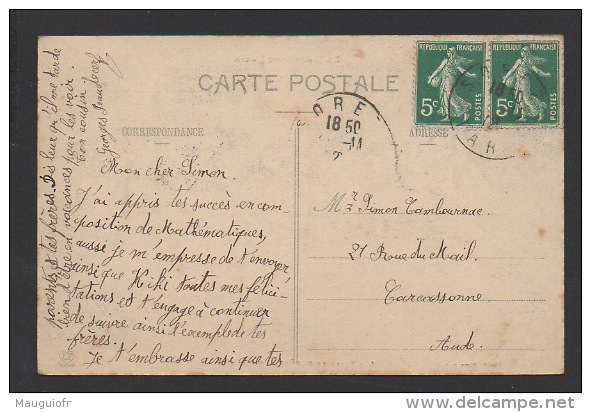 CARTE POSTALE
CORRESPONDANCE
ADRESSE
REPUBLIQUE FRANÇAISE
5c
POSTES
REPUBLIQUE FRANÇAISE
5c
POSTES
18 50
Mon cher Simon.
J'ai appris les succès en com-
position de Mathématiques,
aussi je m'empresse de t'envoyer
ainsi que Kiki toutes mes félici-
tations et t'engage à continuer
de suivre ainsi l'exemple de tes
frères.
Je t'embrasse ainsi que tes
parents et tes frères. Dis leur qu'il me tarde
bien d'être en vacances pour les voir.
Ton cousin
Georges
Mr Simon Tambournac
21 Rue du Mail.
Carcassonne
Aude.
Mauguiofr
delcampe.net